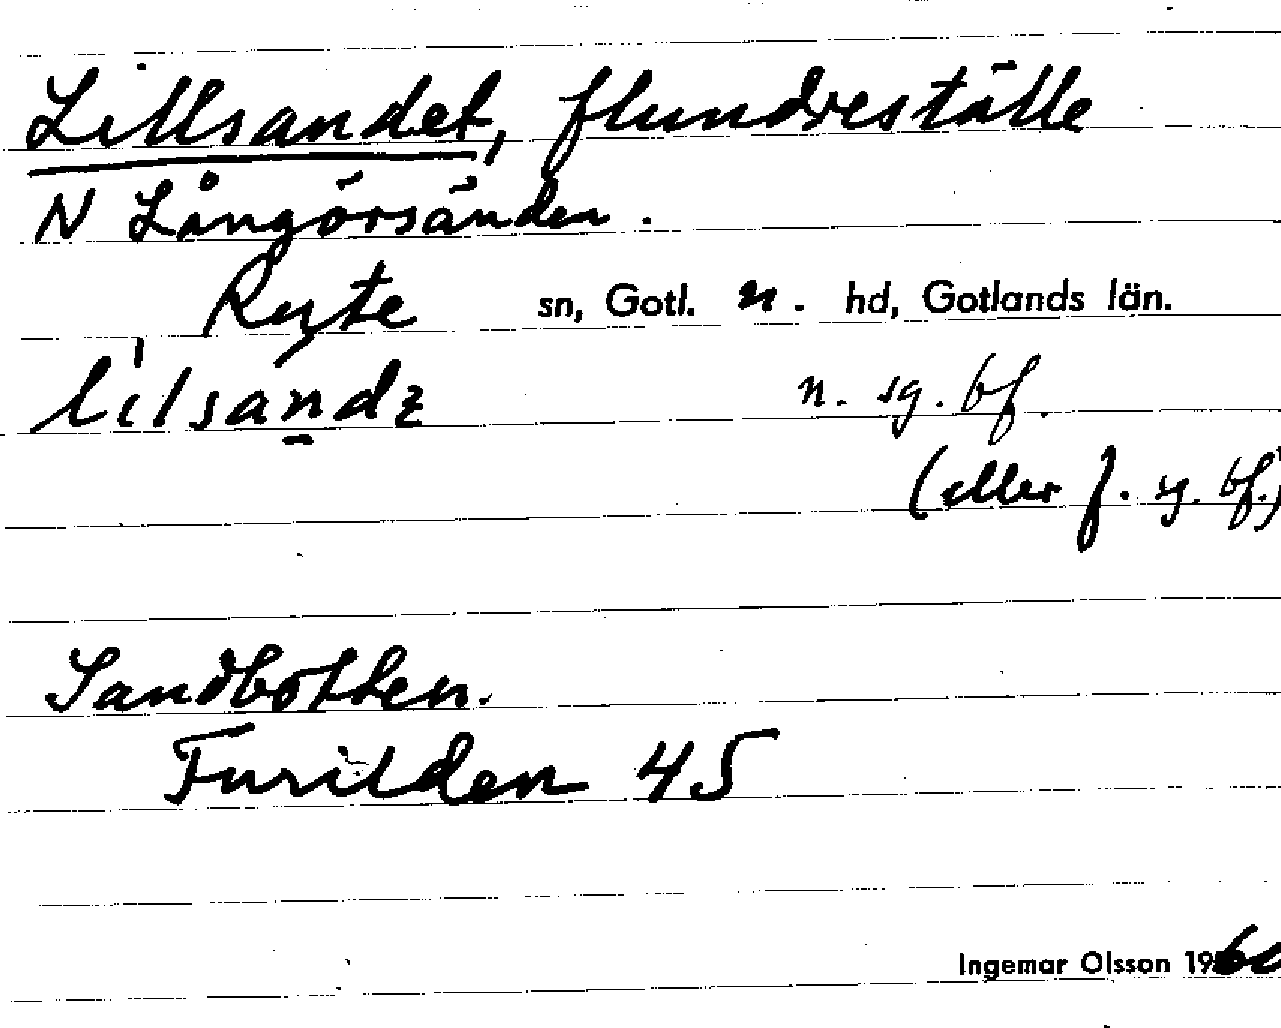 Lillsandet, flundreställe
N Långörsänden.
Rute sn, Gotl. n. hd, Gotlands län.
lilsandz n. sg. bf.
(eller f. sg. bf.)
Sandbotten.
Furilden 45
Ingemar Olsson 1960